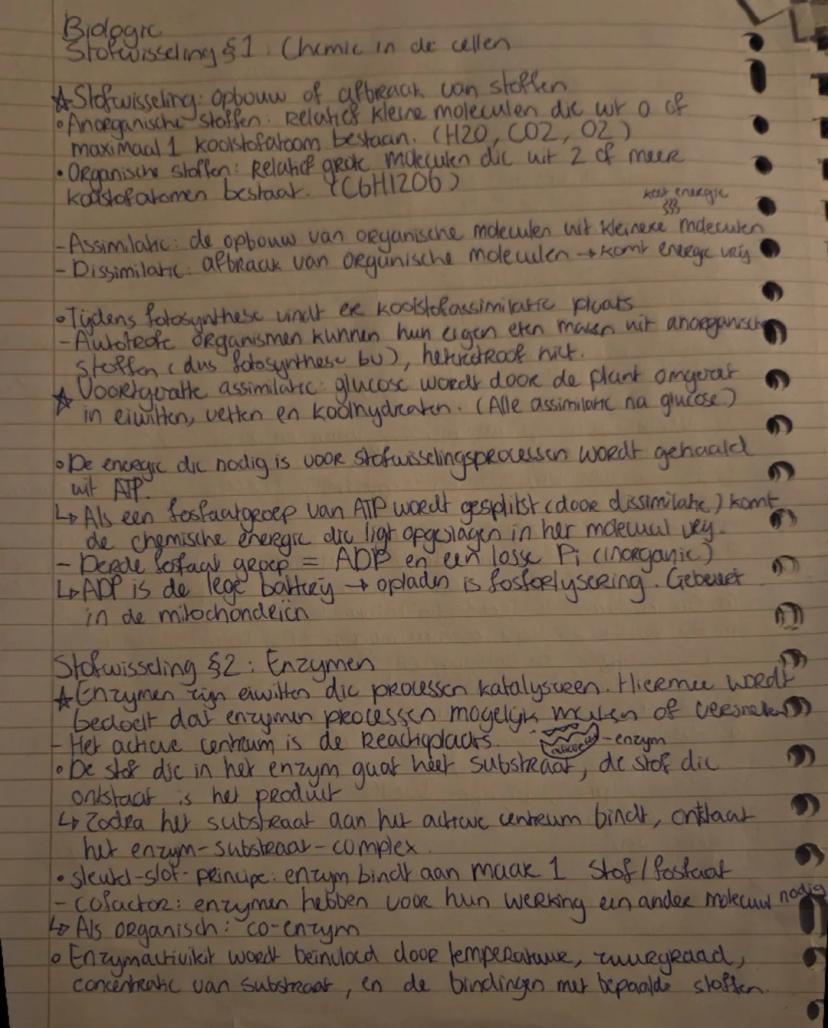 Biologie
Stofwisseling §1: Chemie in de cellen
☆ Stofwisseling: opbouw of afbraak van stoffen
• Anorganische stoffen: Relatief kleine moleculen die uit 0 of
maximaal 1 koolstofatoom bestaan. (H2O, CO2, O2)
• Organische stoffen: Relatief grote moleculen die uit 2 of meer
koolstofatomen bestaat. (C6H12O6)
kost energie
- Assimilatie: de opbouw van organische moleculen uit kleinere moleculen
- Dissimilatie: afbraak van organische moleculen → komt energie vrij
• Tijdens fotosynthese vindt er koolstofassimilatie plaats
- Autotrofe organismen kunnen hun eigen eten maken uit anorganische
stoffen (dus fotosynthese bv), heterotroof niet.
☆ Voortgezette assimilatie: glucose wordt door de plant omgezet
in eiwitten, vetten en koolhydraten. (Alle assimilatie na glucose)
• De energie die nodig is voor stofwisselingsprocessen wordt gehaald
uit ATP.
↳ Als een fosfaatgroep van ATP wordt gesplitst (door dissimilatie) komt
de chemische energie die ligt opgeslagen in het molecuul vrij.
- Derde fosfaat groep = ADP en een losse Pi (inorganic)
↳ ADP is de lege battrij → opladen is fosforlysering. Gebeurt
in de mitochondriën
Stofwisseling §2: Enzymen
☆ Enzymen zijn eiwitten die processen katalyseren. Hiermee wordt
bedoelt dat enzymen processen mogelijk maken of versnellen
- Het actieve centrum is de Reactieplaats. -enzym
• De stof die in het enzym gaat heet substraat, de stof die
ontstaat is het product
↳ Zodra het substraat aan het actieve centrum bindt, ontstaat
het enzym-substraat-complex
• sleutel-slot-principe: enzym bindt aan maar 1 stof/fosfaat
- cofactor: enzymen hebben voor hun werking een ander molecuul nodig
↳ Als organisch: co-enzym
• Enzymactiviteit wordt beïnvloed door temperatuur, zuurgraad,
concentratie van substraat, en de bindingen met bepaalde stoffen.